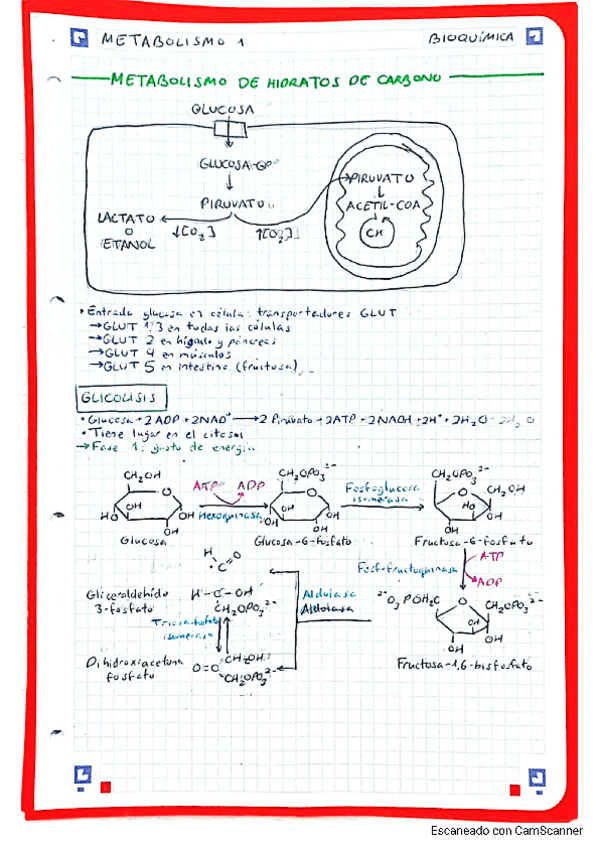 METABOLISMO 1
BIOQUÍMICA
METABOLISMO DE HIDRATOS DE CARBONO
GLUCOSA
GLUCOSA-6P
PIRUVATO
LACTATO
O
ETANOL
↓[O₂]
↑[O₂]
PIRUVATO
ACETIL-COA
CK
• Entrada glucosa en célula: transportadores GLUT
→GLUT 1,3 en todas las células
→GLUT 2 en hígado y páncreas
→GLUT 4 en músculos
→GLUT 5 en intestino (fructosa)
GLICOLISIS
• Glucosa + 2 ADP + 2NAD⁺ → 2 Piruvato + 2ATP + 2NADH + 2H⁺ + 2H₂O
• Tiene lugar en el citosol
→Fase 1: gasto de energía
CH₂OH
O
OH
HO
OH
OH
Glucosa
ATP
ADP
Hexoquinasa
CH₂OPO₃²⁻
O
OH
OH
OH
OH
Glucosa-6-fosfato
Fosfoglucosa
isomerasa
CH₂OPO₃²⁻
O
CH₂OH
HO
OH
OH
Fructosa-6-fosfato
ATP
ADP
Fosfofructoquinasa
²⁻O₃POH₂C
O
CH₂OPO₃²⁻
OH
OH
OH
Fructosa-1,6-bisfosfato
Aldolasa
Aldolasa
H
C
O
Gliceraldehído
3-fosfato
H-C-OH
CH₂OPO₃²⁻
Triosa fosfato
isomerasa
Dihidroxiacetona
fosfato
CH₂OH
O=C
CH₂OPO₃²⁻
Escaneado con CamScanner